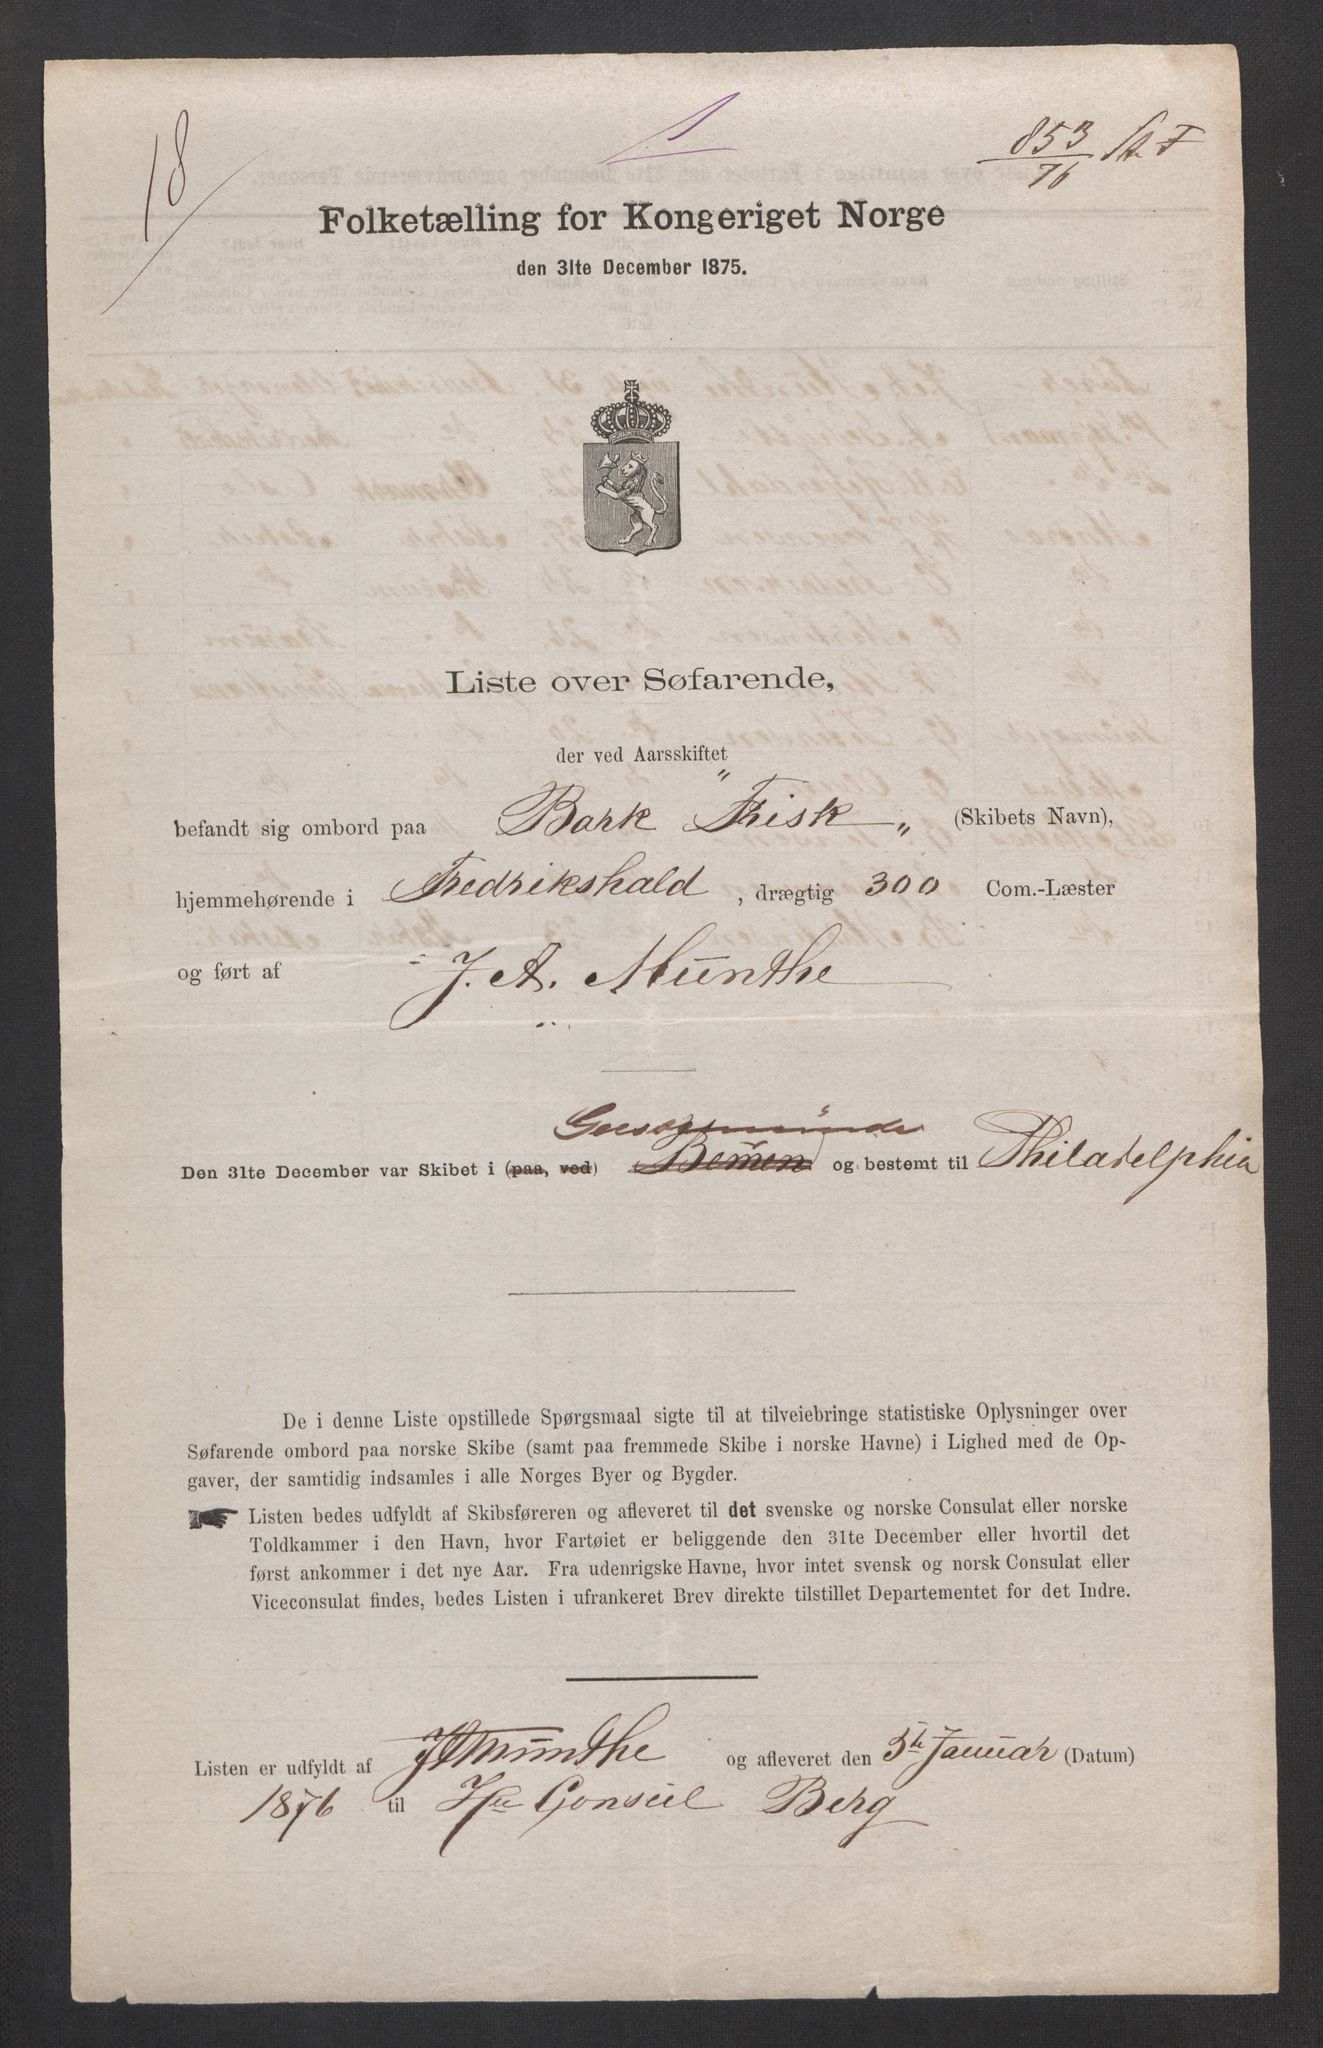 18
853
76
Folketælling for Kongeriget Norge
den 31te December 1875.
Liste over Søfarende,
der ved Aarsskiftet
befandt sig ombord paa Bark "Frisk" (Skibets Navn),
hjemmehørende i Fredrikshald, drægtig 300 Com.-Læster
og ført af J. A. Munthe
Geestemünde
Den 31te December var Skibet i (paa, ved) Bremen og bestemt til Philadelphia
De i denne Liste opstillede Spørgsmaal sigte til at tilveiebringe statistiske Oplysninger over
Søfarende ombord paa norske Skibe (samt paa fremmede Skibe i norske Havne) i Lighed med de Op-
gaver, der samtidig indsamles i alle Norges Byer og Bygder.
Listen bedes udfyldt af Skibsføreren og afleveret til det svenske og norske Consulat eller norske
Toldkammer i den Havn, hvor Fartøiet er beliggende den 31te December eller hvortil det
først ankommer i det nye Aar. Fra udenrigske Havne, hvor intet svensk og norsk Consulat eller
Viceconsulat findes, bedes Listen i ufrankeret Brev direkte tilstillet Departementet for det Indre.
Listen er udfyldt af JAMunthe og afleveret den 5th Januar (Datum)
1876 til Hr Consul Berg